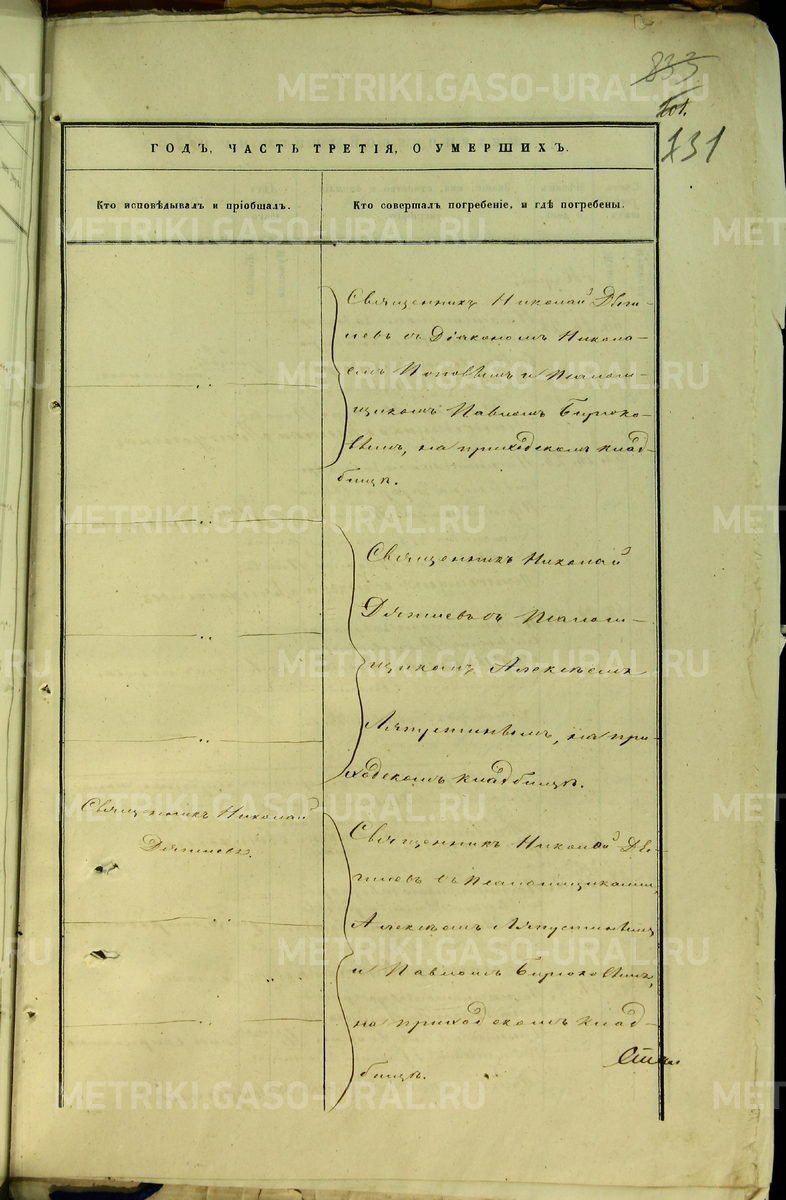 833
101.
131
ГОДЪ, ЧАСТЬ ТРЕТІЯ, О УМЕРШИХЪ.
Кто исповѣдывалъ и пріобщалъ.
Кто совершалъ погребеніе, и гдѣ погребены.
Священникъ Николай
съ Діакономъ Никола-
емъ Поповымъ и Псаломъ-
щикомъ Павломъ Бирюко-
вымъ, на приходскомъ клад-
бищѣ.
Священникъ Николай
съ Псаломъ-
щикомъ Алексѣемъ
Ляпустинымъ, на при-
ходскомъ кладбищѣ.
Священникъ Николай
Священникъ Николай
съ Псаломщиками,
Алексѣемъ Ляпустинымъ
и Павломъ Бирюковымъ,
на приходскомъ клад-
бищѣ.
METRIKI.GASO-URAL.RU